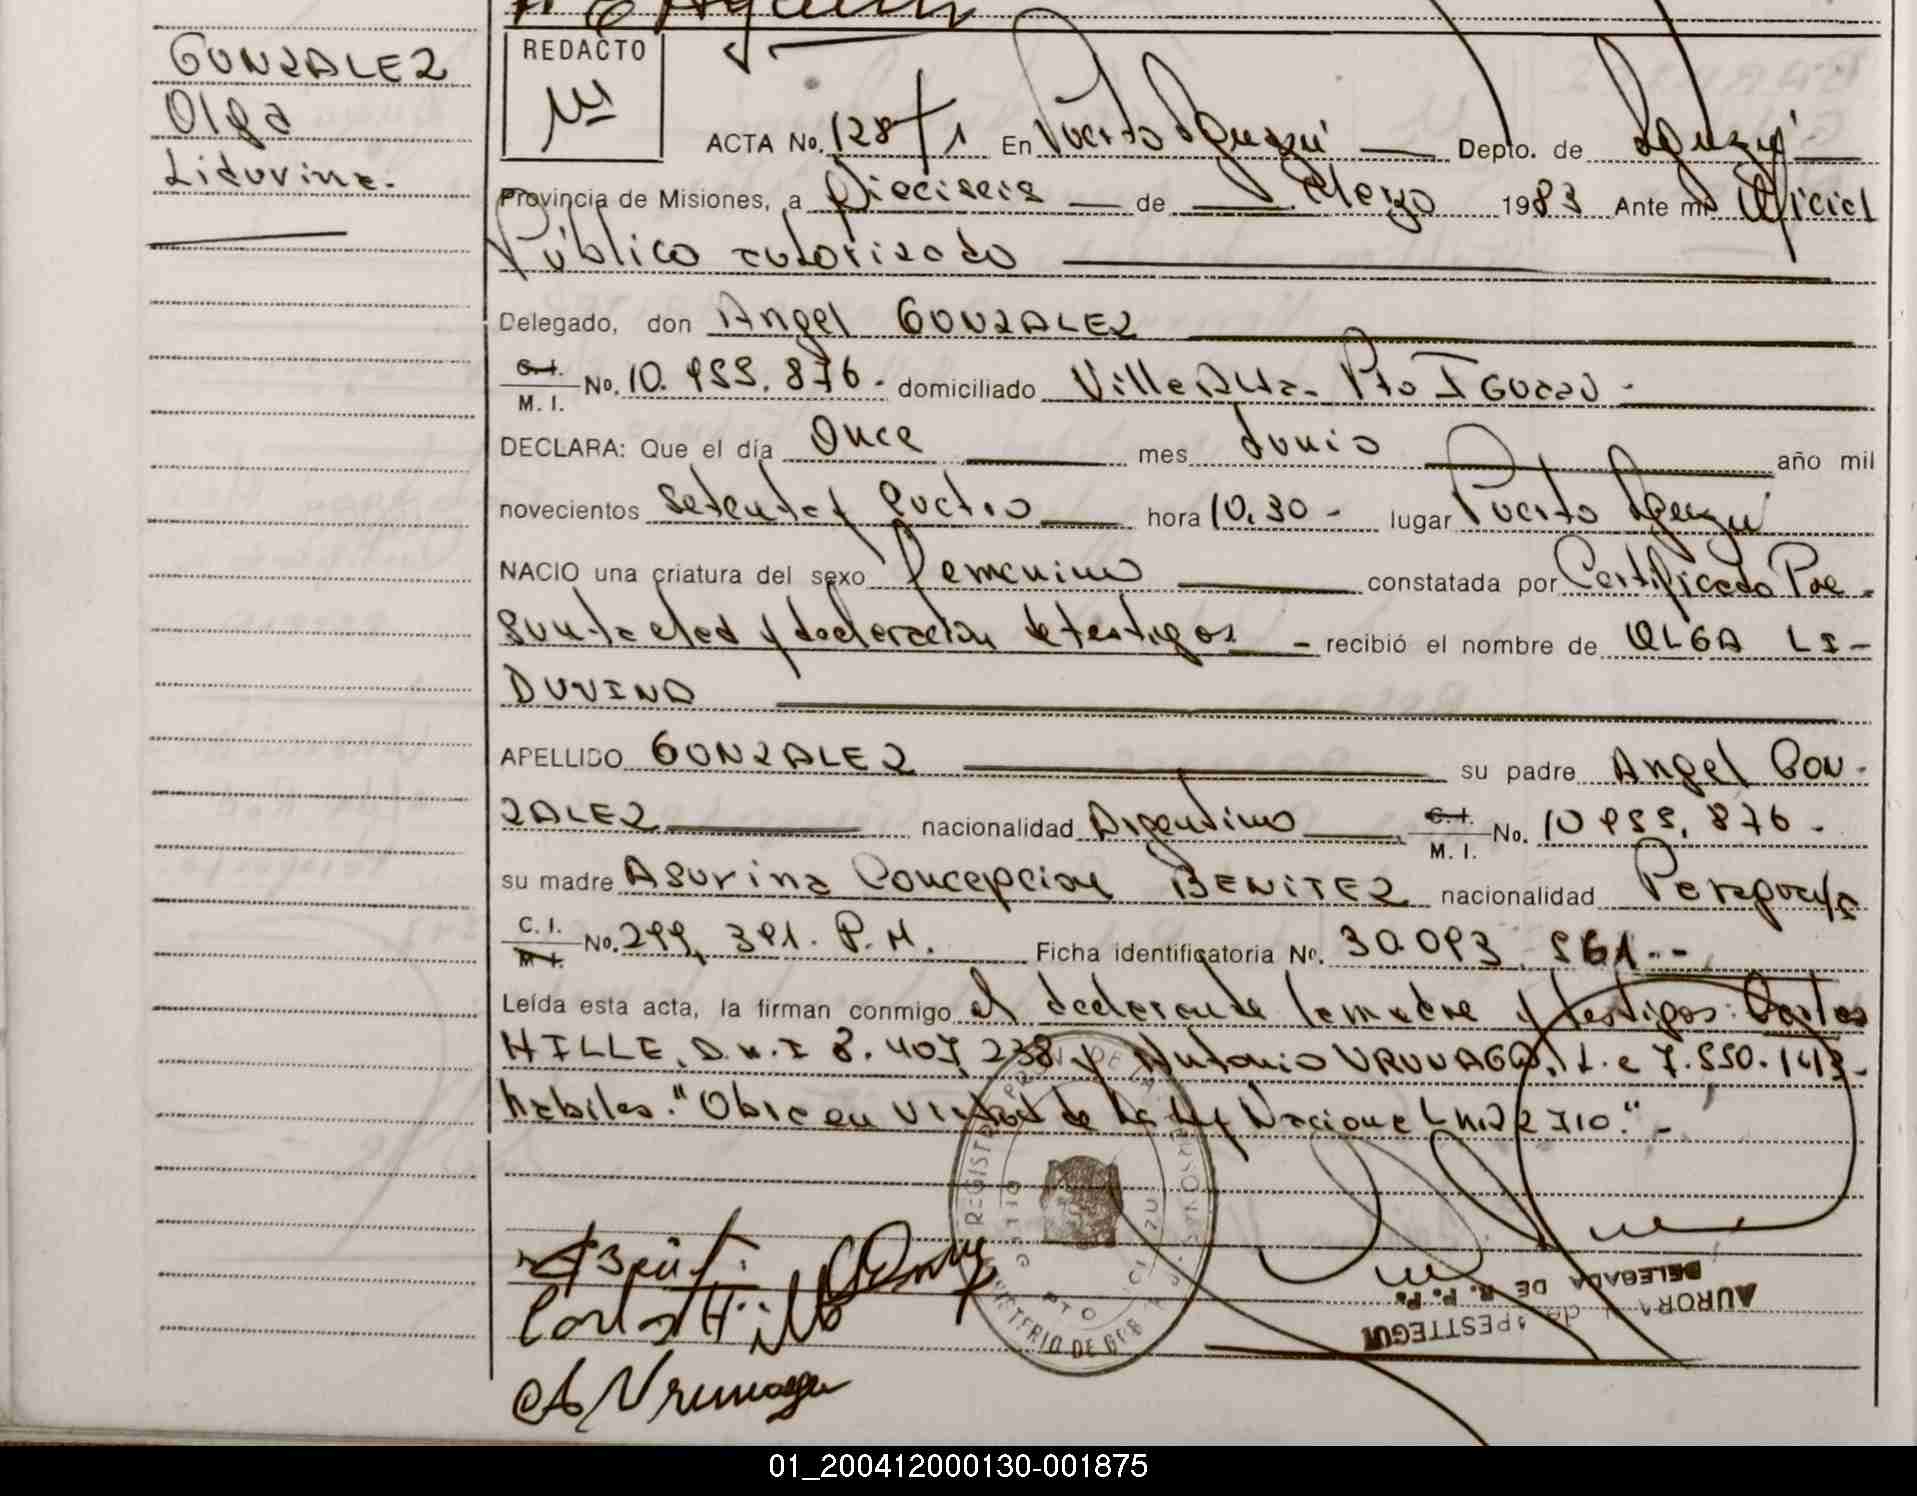 GONZALEZ
Olga
Liduvina.-
REDACTO
ACTA No. 128 T 1 En Puerto Iguazú Depto. de Iguazú
Provincia de Misiones, a Dieciseis de Marzo 1983 Ante mi Oficial
Público autorizado
Delegado, don Angel GONZALEZ
C.I.
M. I. No. 10.955.876.- domiciliado Villa Alta- Pto IGUAZU -
DECLARA: Que el día Once mes Junio año mil
novecientos setenta y cuatro hora 10,30 - lugar Puerto Iguazú
NACIO una criatura del sexo femenino constatada por Certificado Pre-
sunta edad y declaración de testigos - recibió el nombre de OLGA LI-
DUVINA
APELLIDO GONZALEZ su padre Angel GON-
ZALEZ nacionalidad Argentino C.I.
M. I. No. 10 955.876 -
su madre Asurina Concepcion BENITEZ nacionalidad Paraguaya
C. I.
M I. No. 299.391. P.M. Ficha identificatoria No. 30.093.561--
Leída esta acta, la firman conmigo el declarante la madre y testigos: Carlos
HILLE, D.N.I 8.407 238 y Antonio URUNAGA, L.e 7.550.143-
habiles. "Obra en Virtud de la Ley Nacional Nº 22710." -
Carlos Hille
A Urunaga
REGISTRO
PTO
MINISTERIO DE
AURORA de APESTTEGUI
DELEGADA DE R. P. P.
01_200412000130-001875